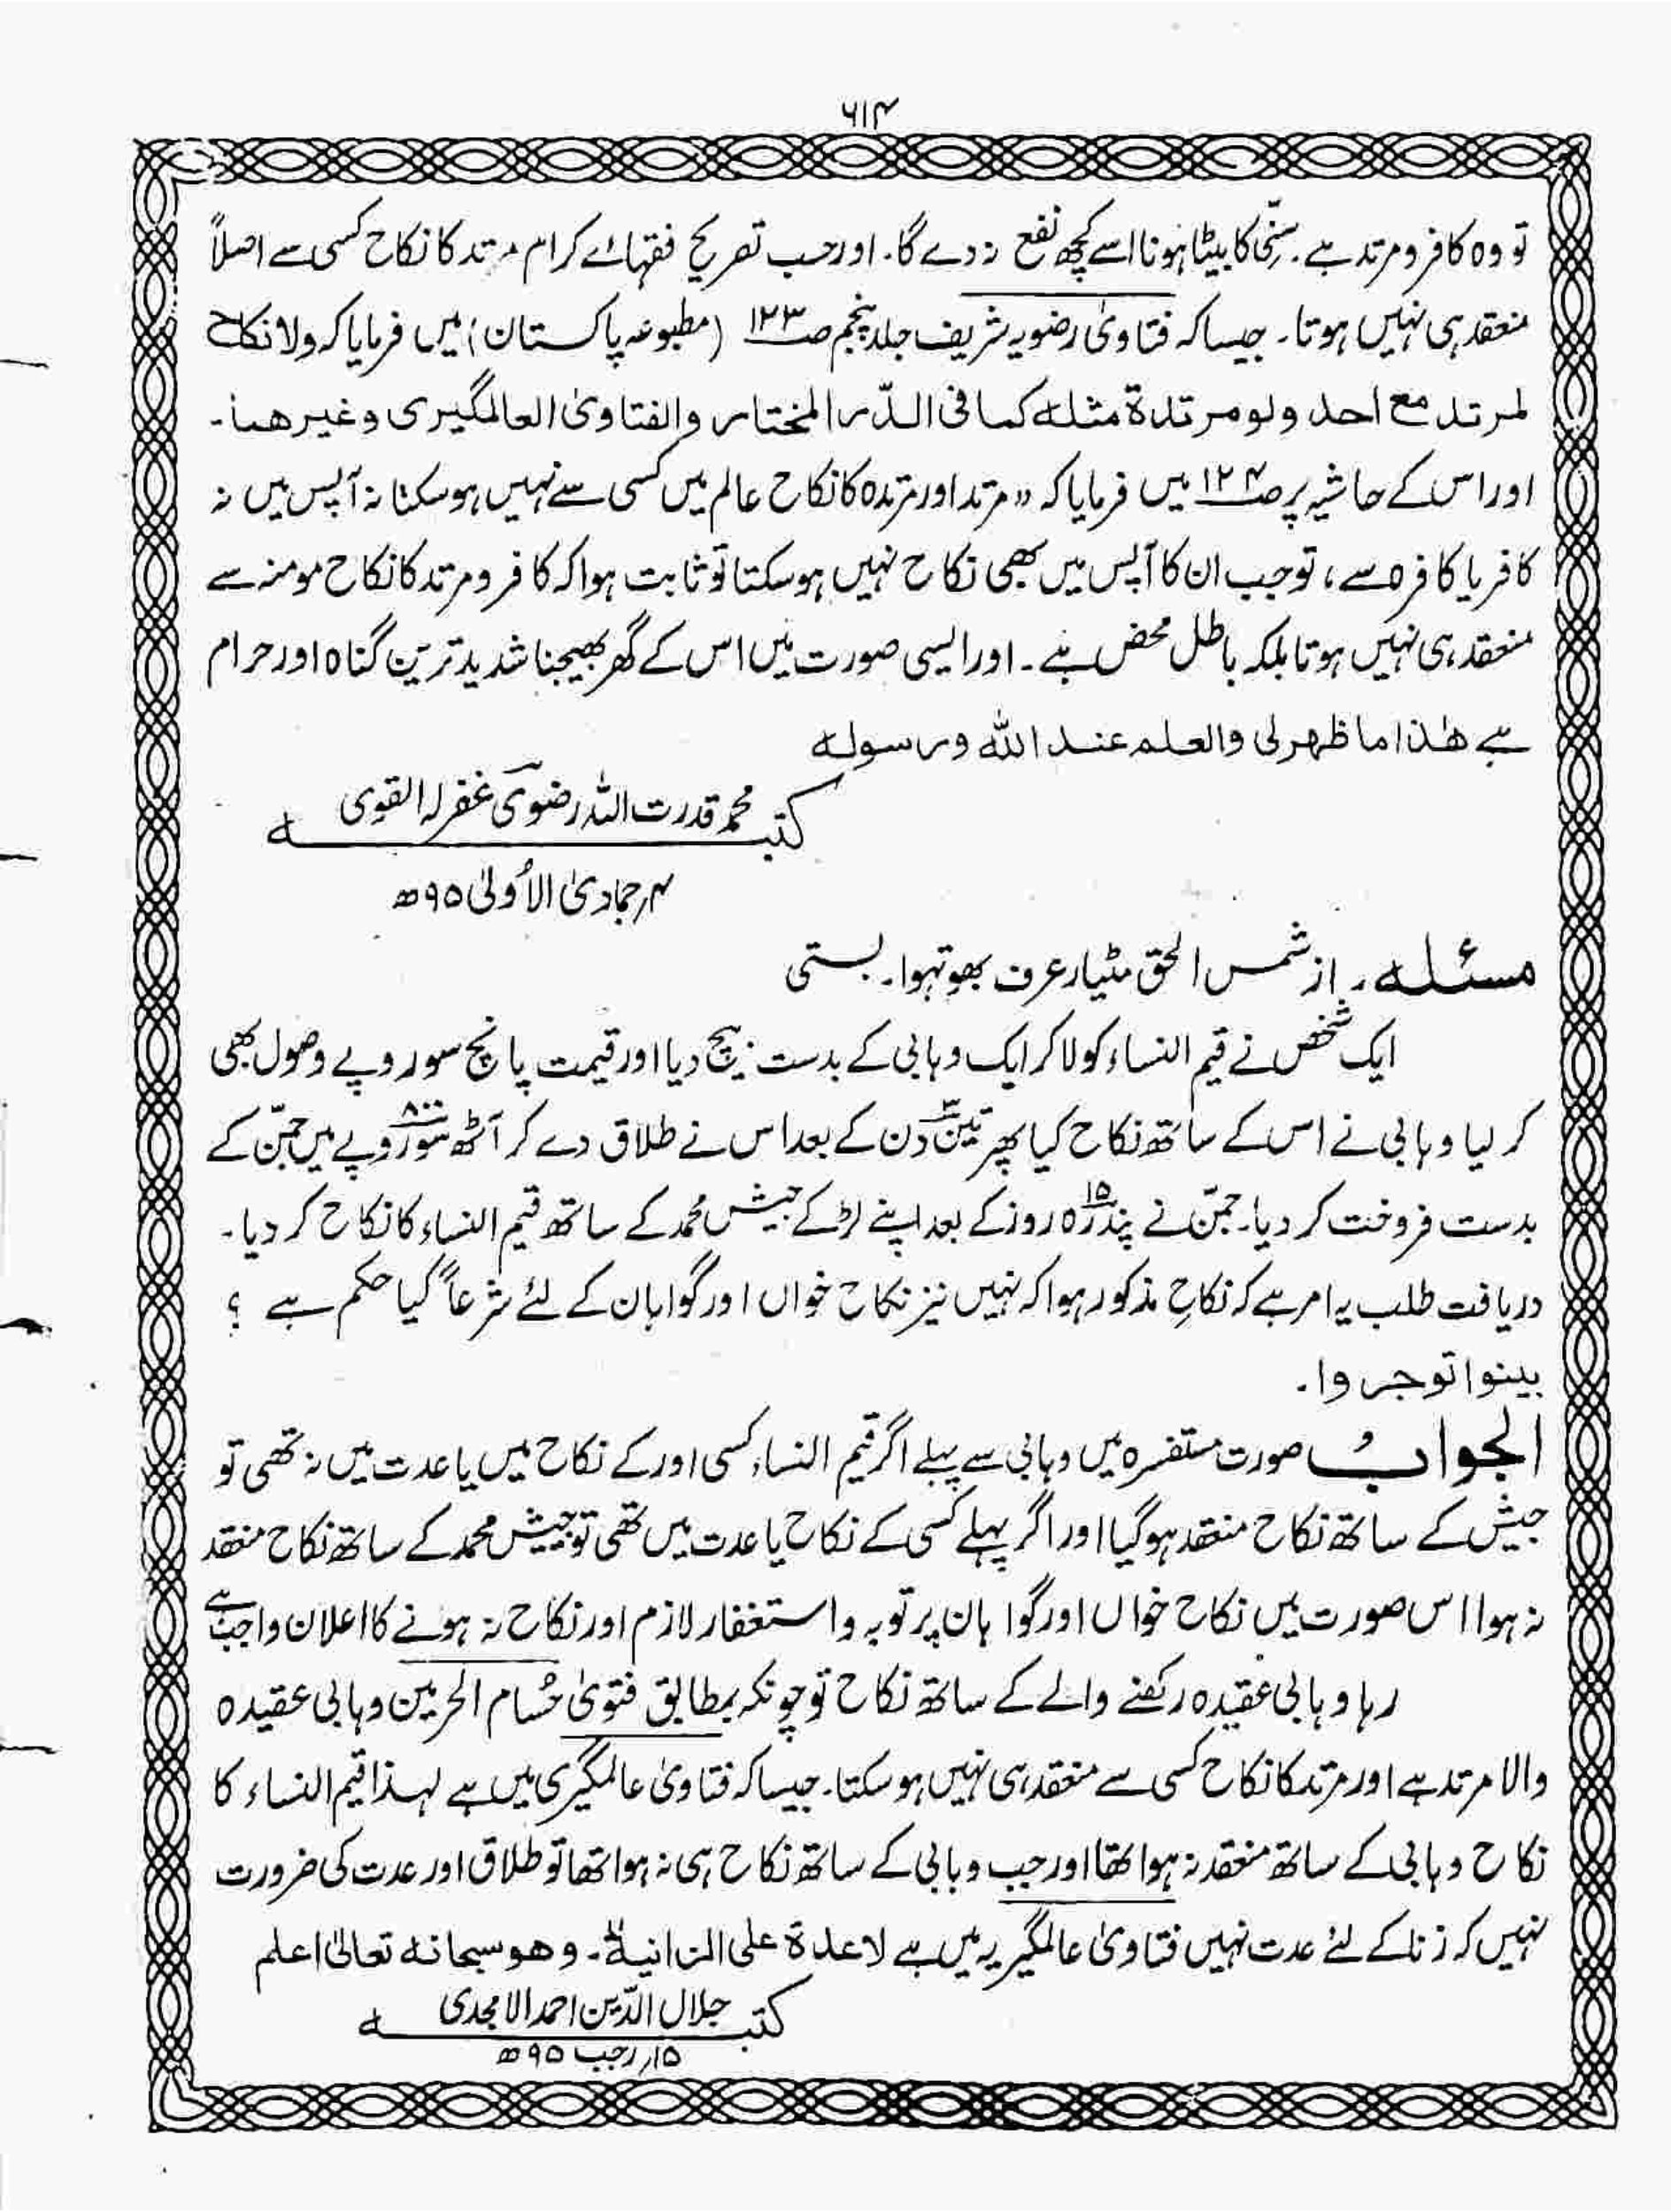 ۶۱۴
تو وہ کافر و مرتد ہے۔ سنّی کا بیٹا ہونا اسے کچھ نفع نہ دے گا۔ اور حسب تصریح فقہائے کرام مرتد کا نکاح کسی سے اصلاً
منعقد ہی نہیں ہوتا۔ جیسا کہ فتاویٰ رضویہ شریف جلد پنجم صـ۱۲۳ (مطبوعہ پاکستان) میں فرمایا کہ ولا نکاح
لمرتد مع احد ولو مرتدۃ مثلہ کما فی الدّر المختار والفتاویٰ العالمگیری وغیرھما۔
اور اس کے حاشیہ پر صـ۱۲۴ میں فرمایا کہ ”مرتد اور مرتدہ کا نکاح عالم میں کسی سے نہیں ہوسکتا نہ آپس میں نہ
کافر یا کافرہ سے، تو جب ان کا آپس میں بھی نکاح نہیں ہوسکتا تو ثابت ہوا کہ کافر و مرتد کا نکاح مومنہ سے
منعقد ہی نہیں ہوتا بلکہ باطل محض ہے۔ اور ایسی صورت میں اس کے گھر بھیجنا شدید ترین گناہ اور حرام
ہے ھٰذا ما ظھر لی والعلم عند اللہ ورسولہ
کتبہ محمد قدرت اللہ رضوی غفرلہ القوی
۴؍جمادی الاُولیٰ ۹۵ھ
مسئلہ۔ از شمس الحق مٹیار عرف بھوتہوا۔ بستی
ایک شخص نے قیم النساء کو لاکر ایک وہابی کے بدست بیچ دیا اور قیمت پانچ سو روپے وصول بھی
کر لیا وہابی نے اس کے ساتھ نکاح کیا پھر تین۳ دن کے بعد اس نے طلاق دے کر آٹھ سو۸۰۰ روپے میں جمّن کے
بدست فروخت کر دیا۔ جمّن نے پندرہ۱۵ روز کے بعد اپنے لڑکے جیش محمد کے ساتھ قیم النساء کا نکاح کر دیا۔
دریافت طلب یہ امر ہے کہ نکاحِ مذکور ہوا کہ نہیں نیز نکاح خواں اور گواہان کے لئے شرعاً کیا حکم ہے ؟
بینوا توجروا۔
الجوابُ صورت مستفسرہ میں وہابی سے پہلے اگر قیم النساء کسی اور کے نکاح میں یا عدت میں نہ تھی تو
جیش کے ساتھ نکاح منعقد ہوگیا اور اگر پہلے کسی کے نکاح یا عدت میں تھی تو جیش محمد کے ساتھ نکاح منعقد
نہ ہوا اس صورت میں نکاح خواں اور گواہان پر توبہ و استغفار لازم اور نکاح نہ ہونے کا اعلان واجب ہے
رہا وہابی عقیدہ رکھنے والے کے ساتھ نکاح تو چونکہ بمطابق فتویٰ حُسام الحرمین وہابی عقیدہ
والا مرتد ہے اور مرتد کا نکاح کسی سے منعقد ہی نہیں ہوسکتا۔ جیسا کہ فتاویٰ عالمگیری میں ہے لہذا قیم النساء کا
نکاح وہابی کے ساتھ منعقد نہ ہوا تھا اور جب وہابی کے ساتھ نکاح ہی نہ ہوا تھا تو طلاق اور عدت کی ضرورت
نہیں کہ زنا کے لئے عدت نہیں فتاویٰ عالمگیریہ میں ہے لاعدۃ علی الزانیۃ۔ وھو سبحانہ تعالیٰ اعلم
کتبہ جلال الدّین احمد الامجدی
۱۵؍رجب ۹۵ھ